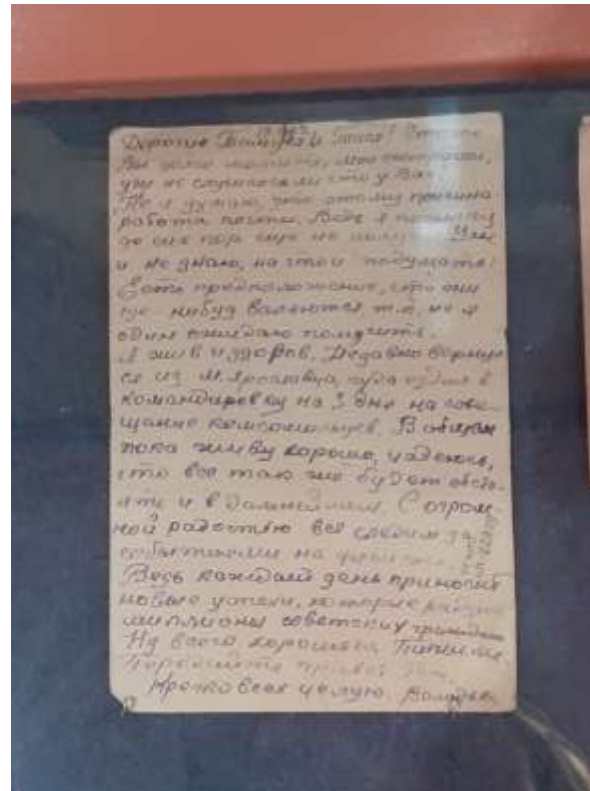 Дорогие
Вы долго молчите,
уж не случилось ли что у Вас
Но я думаю, что этому причина
работа почты. Ведь я
до сих пор еще не
и не знаю, на что и подумать!
Есть предположение, что они
где нибудь валяются т.к. не я
один ожидаю получить.
Я жив и здоров. Недавно вернул
ся из М. Ярославца, куда ездил в
командировку на 3 дня на сове-
щание комсомольцев. В общем
пока живу хорошо, надеюсь,
что все так же будет обсто-
ять и в дальнейшем. С огром-
ной радостью все следим за
событиями на
Ведь каждый день приносит
новые успехи, которые
миллионы советских граждан
Ну всего хорошего Пишите.
Передайте привет
Крепко всех целую.